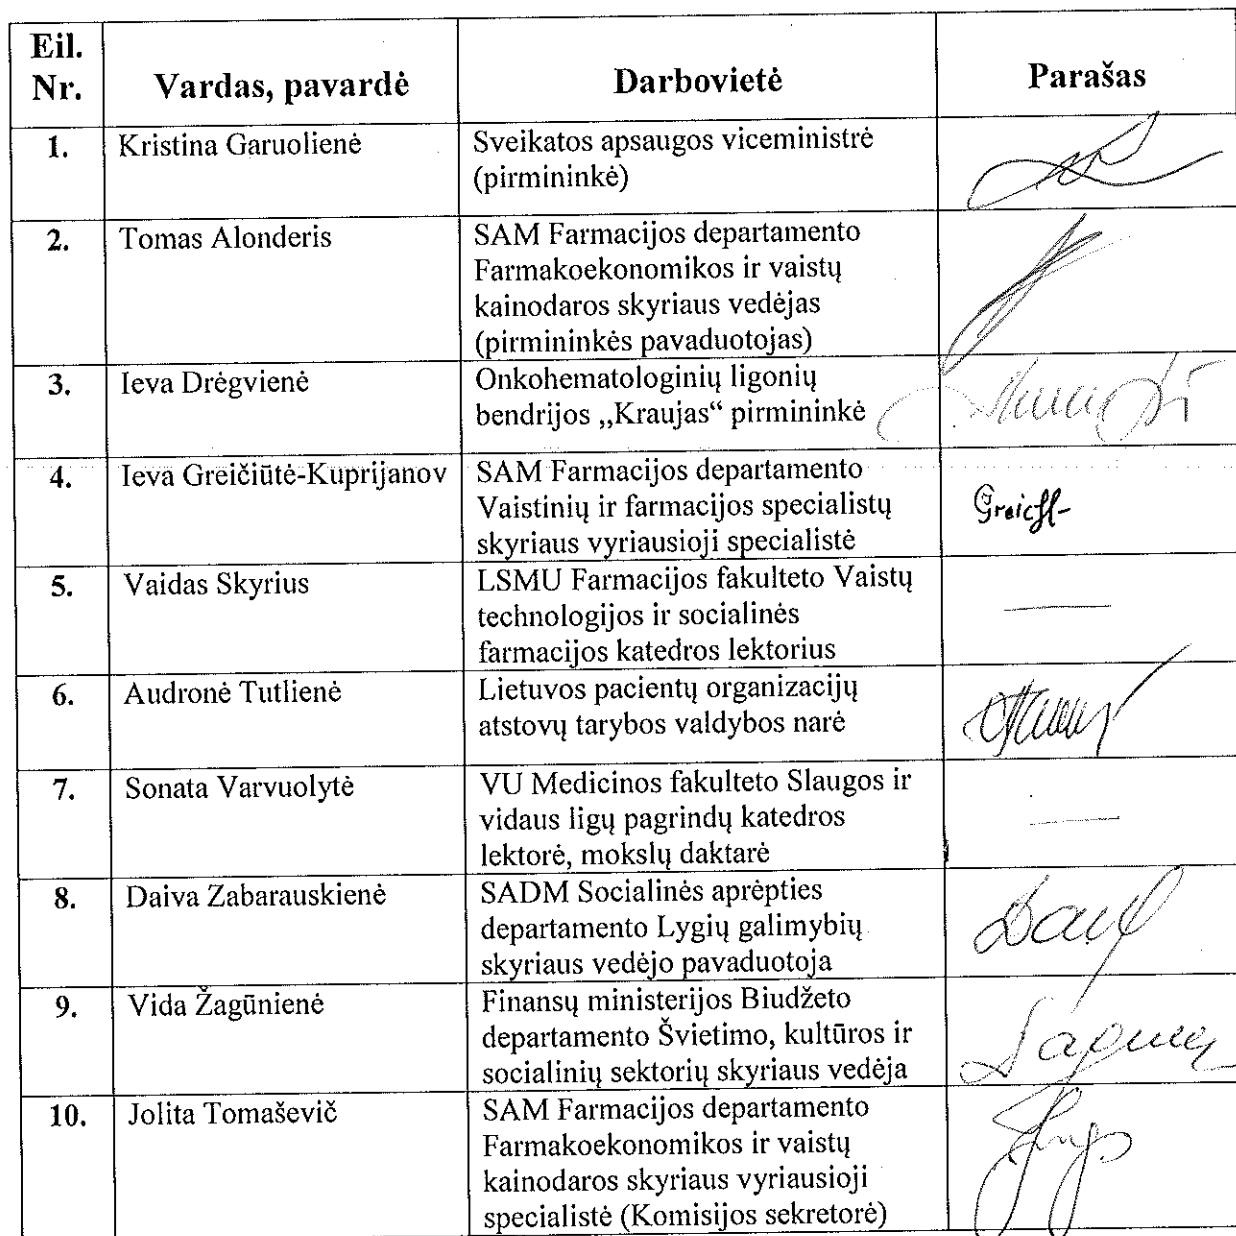 Eil. Nr. Vardas, pavardė Darbovietė Parašas
1. Kristina Garuolienė Sveikatos apsaugos viceministrė
(pirmininkė)
2. Tomas Alonderis SAM Farmacijos departamento
Farmakoekonomikos ir vaistų
kainodaros skyriaus vedėjas
(pirmininkės pavaduotojas)
3. Ieva Drėgvienė Onkohematologinių ligonių
bendrijos ,,Kraujas“ pirmininkė
4. Ieva Greičiūtė-Kuprijanov SAM Farmacijos departamento
Vaistinių ir farmacijos specialistų
skyriaus vyriausioji specialistė
5. Vaidas Skyrius LSMU Farmacijos fakulteto Vaistų
technologijos ir socialinės
farmacijos katedros lektorius
6. Audronė Tutlienė Lietuvos pacientų organizacijų
atstovų tarybos valdybos narė
7. Sonata Varvuolytė VU Medicinos fakulteto Slaugos ir
vidaus ligų pagrindų katedros
lektorė, mokslų daktarė
8. Daiva Zabarauskienė SADM Socialinės aprėpties
departamento Lygių galimybių
skyriaus vedėjo pavaduotoja
9. Vida Žagūnienė Finansų ministerijos Biudžeto
departamento Švietimo, kultūros ir
socialinių sektorių skyriaus vedėja
10. Jolita Tomaševič SAM Farmacijos departamento
Farmakoekonomikos ir vaistų
kainodaros skyriaus vyriausioji
specialistė (Komisijos sekretorė)